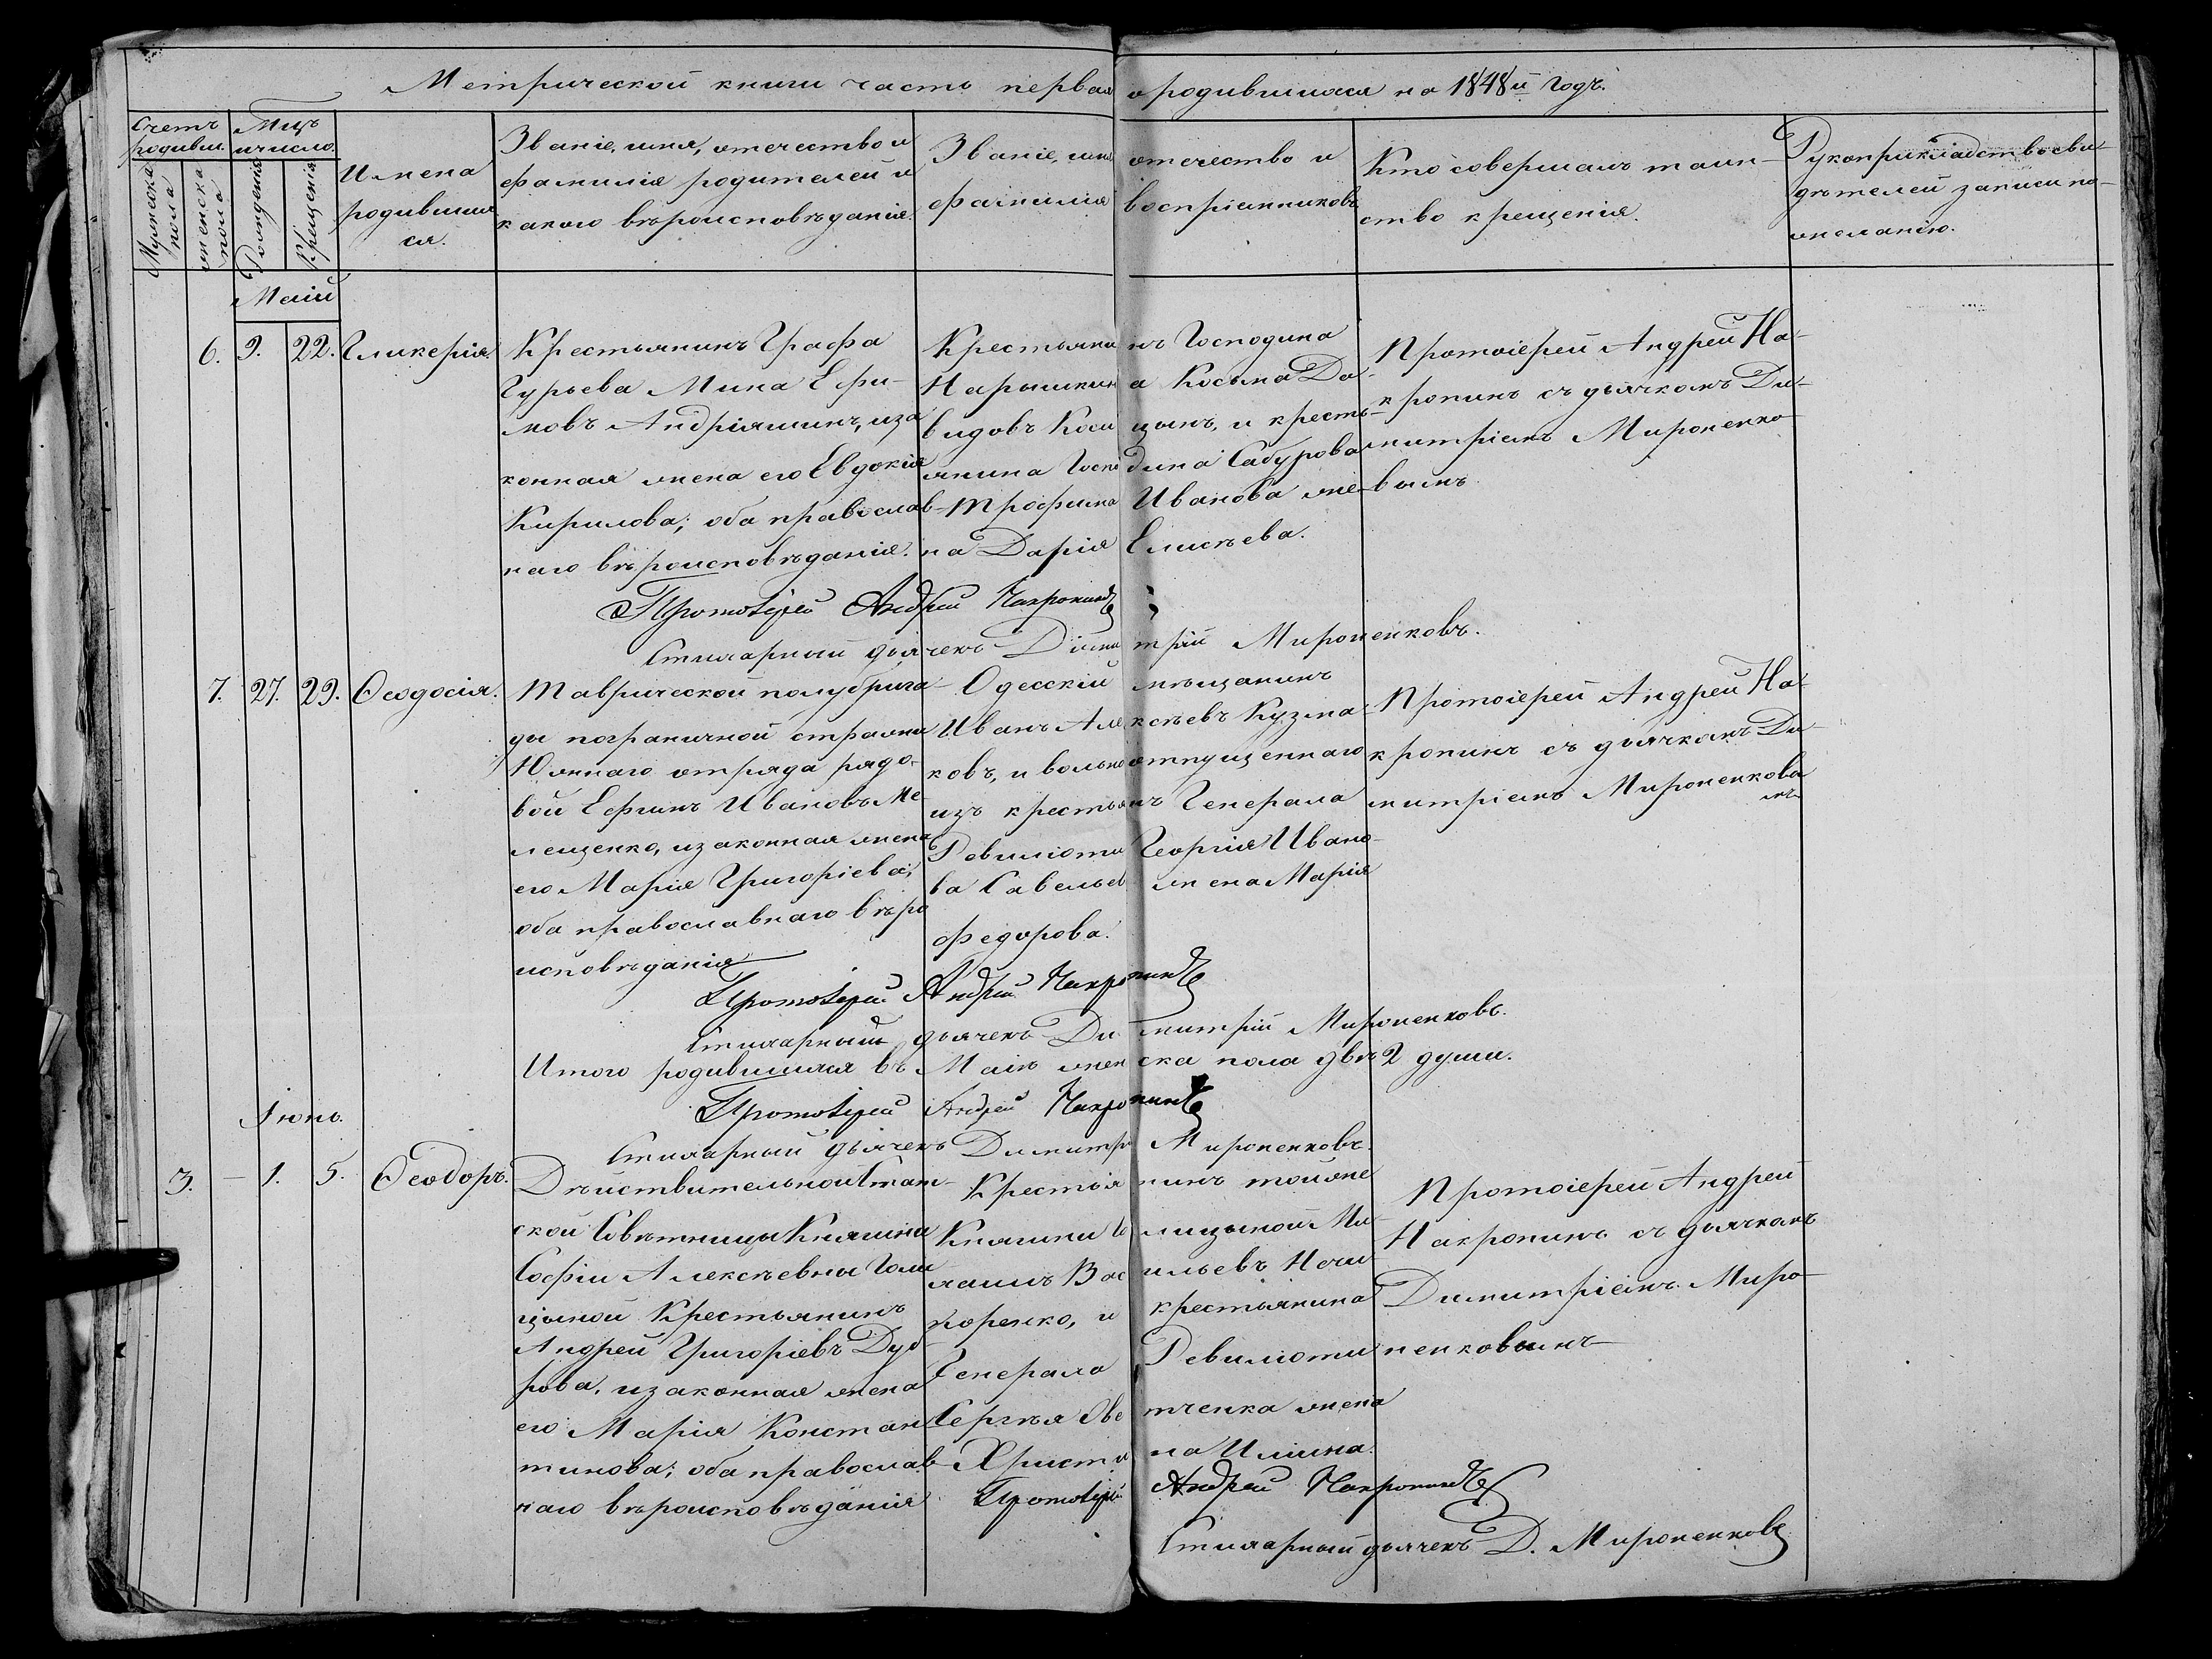 Метрической книги часть первая о родившихся на 1848й годъ.
Счетъ родивш.
Мужеска пола
женска пола
Мцъ и число.
Рожденія
Крещенія
Имена
родивших
ся.
Званіе, имя, отечество и
фамилія родителей и
какого вѣроисповѣданія.
Званіе, имя, отечество и
фамилія воспріемниковъ
Кто совершалъ таин-
ство крещенія.
Рукоприкладство сви
дѣтелей записи по
желанію.
Маій
6. 9. 22. Гликерія
Крестьянинъ Графа
Гурьева Мина Ефи-
мовъ Андріяшинъ, иза
конная жена его Евдокія
Кирилова; оба православ-
наго вѣроисповѣданія.
Крестьянинъ Господина
Нарышкина Косьма Да-
видовъ Косицынъ, и кресть-
янина Господина Сабурова
Трофима Иванова же-
на Дарія Елисѣева.
Протоіерей Андрей На-
кропинъ съ дьячкомъ Ди-
митріемъ Мироненко
вымъ
Протоіерей Андрей Накропинъ
Стихарный дьячекъ Димитрій Мироненковъ.
7. 27. 29. Ѳеодосія.
Таврической полубрига-
ды пограничной стражи
Южнаго отряда рядо-
вой Ефимъ Ивановъ Ме
лещенко, изаконная жена
его Марія Григоріева;
оба православнаго вѣро
исповѣданія
Одесскій мѣщанинъ
Иванъ Алексѣевъ Кузма-
ковъ, и вольноотпущеннаго
изъ крестьянъ Генерала
Ревиліоти Георгія Ивано-
ва Савельев жена Марія
Федорова.
Протоіерей Андрей На-
кропинъ съ дьячкомъ Ди-
митріемъ Мироненковы
мъ
Протоіерей Андрей Накропинъ
Стихарный дьячекъ Димитрій Мироненковъ.
Итого родившихся въ Маіѣ женска пола двѣ 2 души.
Протоіерей Андрей Накропинъ
Стихарный дьячекъ Димитрі Мироненковъ.
Іюнь.
3. – 1. 5. Ѳеодоръ.
Дѣйствительной Стат-
ской Совѣтницы Княгини
Софіи Алексѣевны Голи
цыной Крестьянинъ
Андрей Григоріевъ Дуб-
рова, изаконная жена
его Марія Констан
тинова; оба православ-
наго вѣроисповѣданія
Крестьянинъ тойже
Княгини Голицыной Ми-
хаилъ Васильевъ Нечи
поренко, и крестьянина
Генерала Ревиліоти
Сергѣя Яветченка жена
Христина Ильина.
Протоіерей Андрей
Накропинъ съ дьячкомъ
Димитріемъ Миро-
ненковымъ
Протоіерей Андрей Накропинъ
Стихарный дьячекъ Д. Мироненковъ